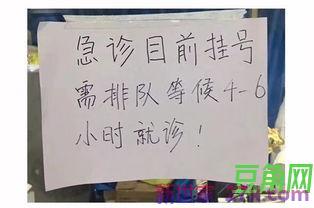 急诊目前挂号
需排队等候4-6
小时就诊!
豆角网